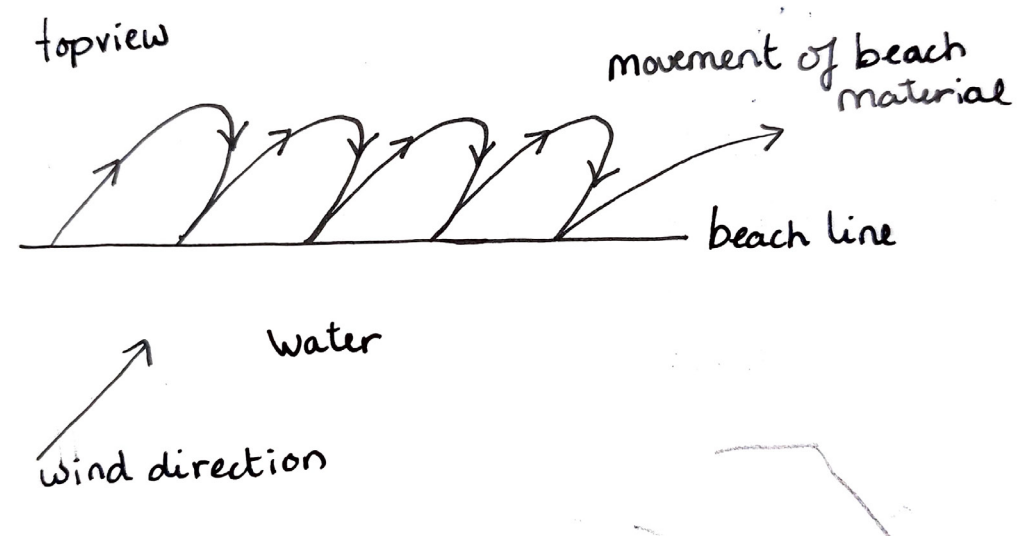 topview
movement of beach
material
beach line
water
wind direction